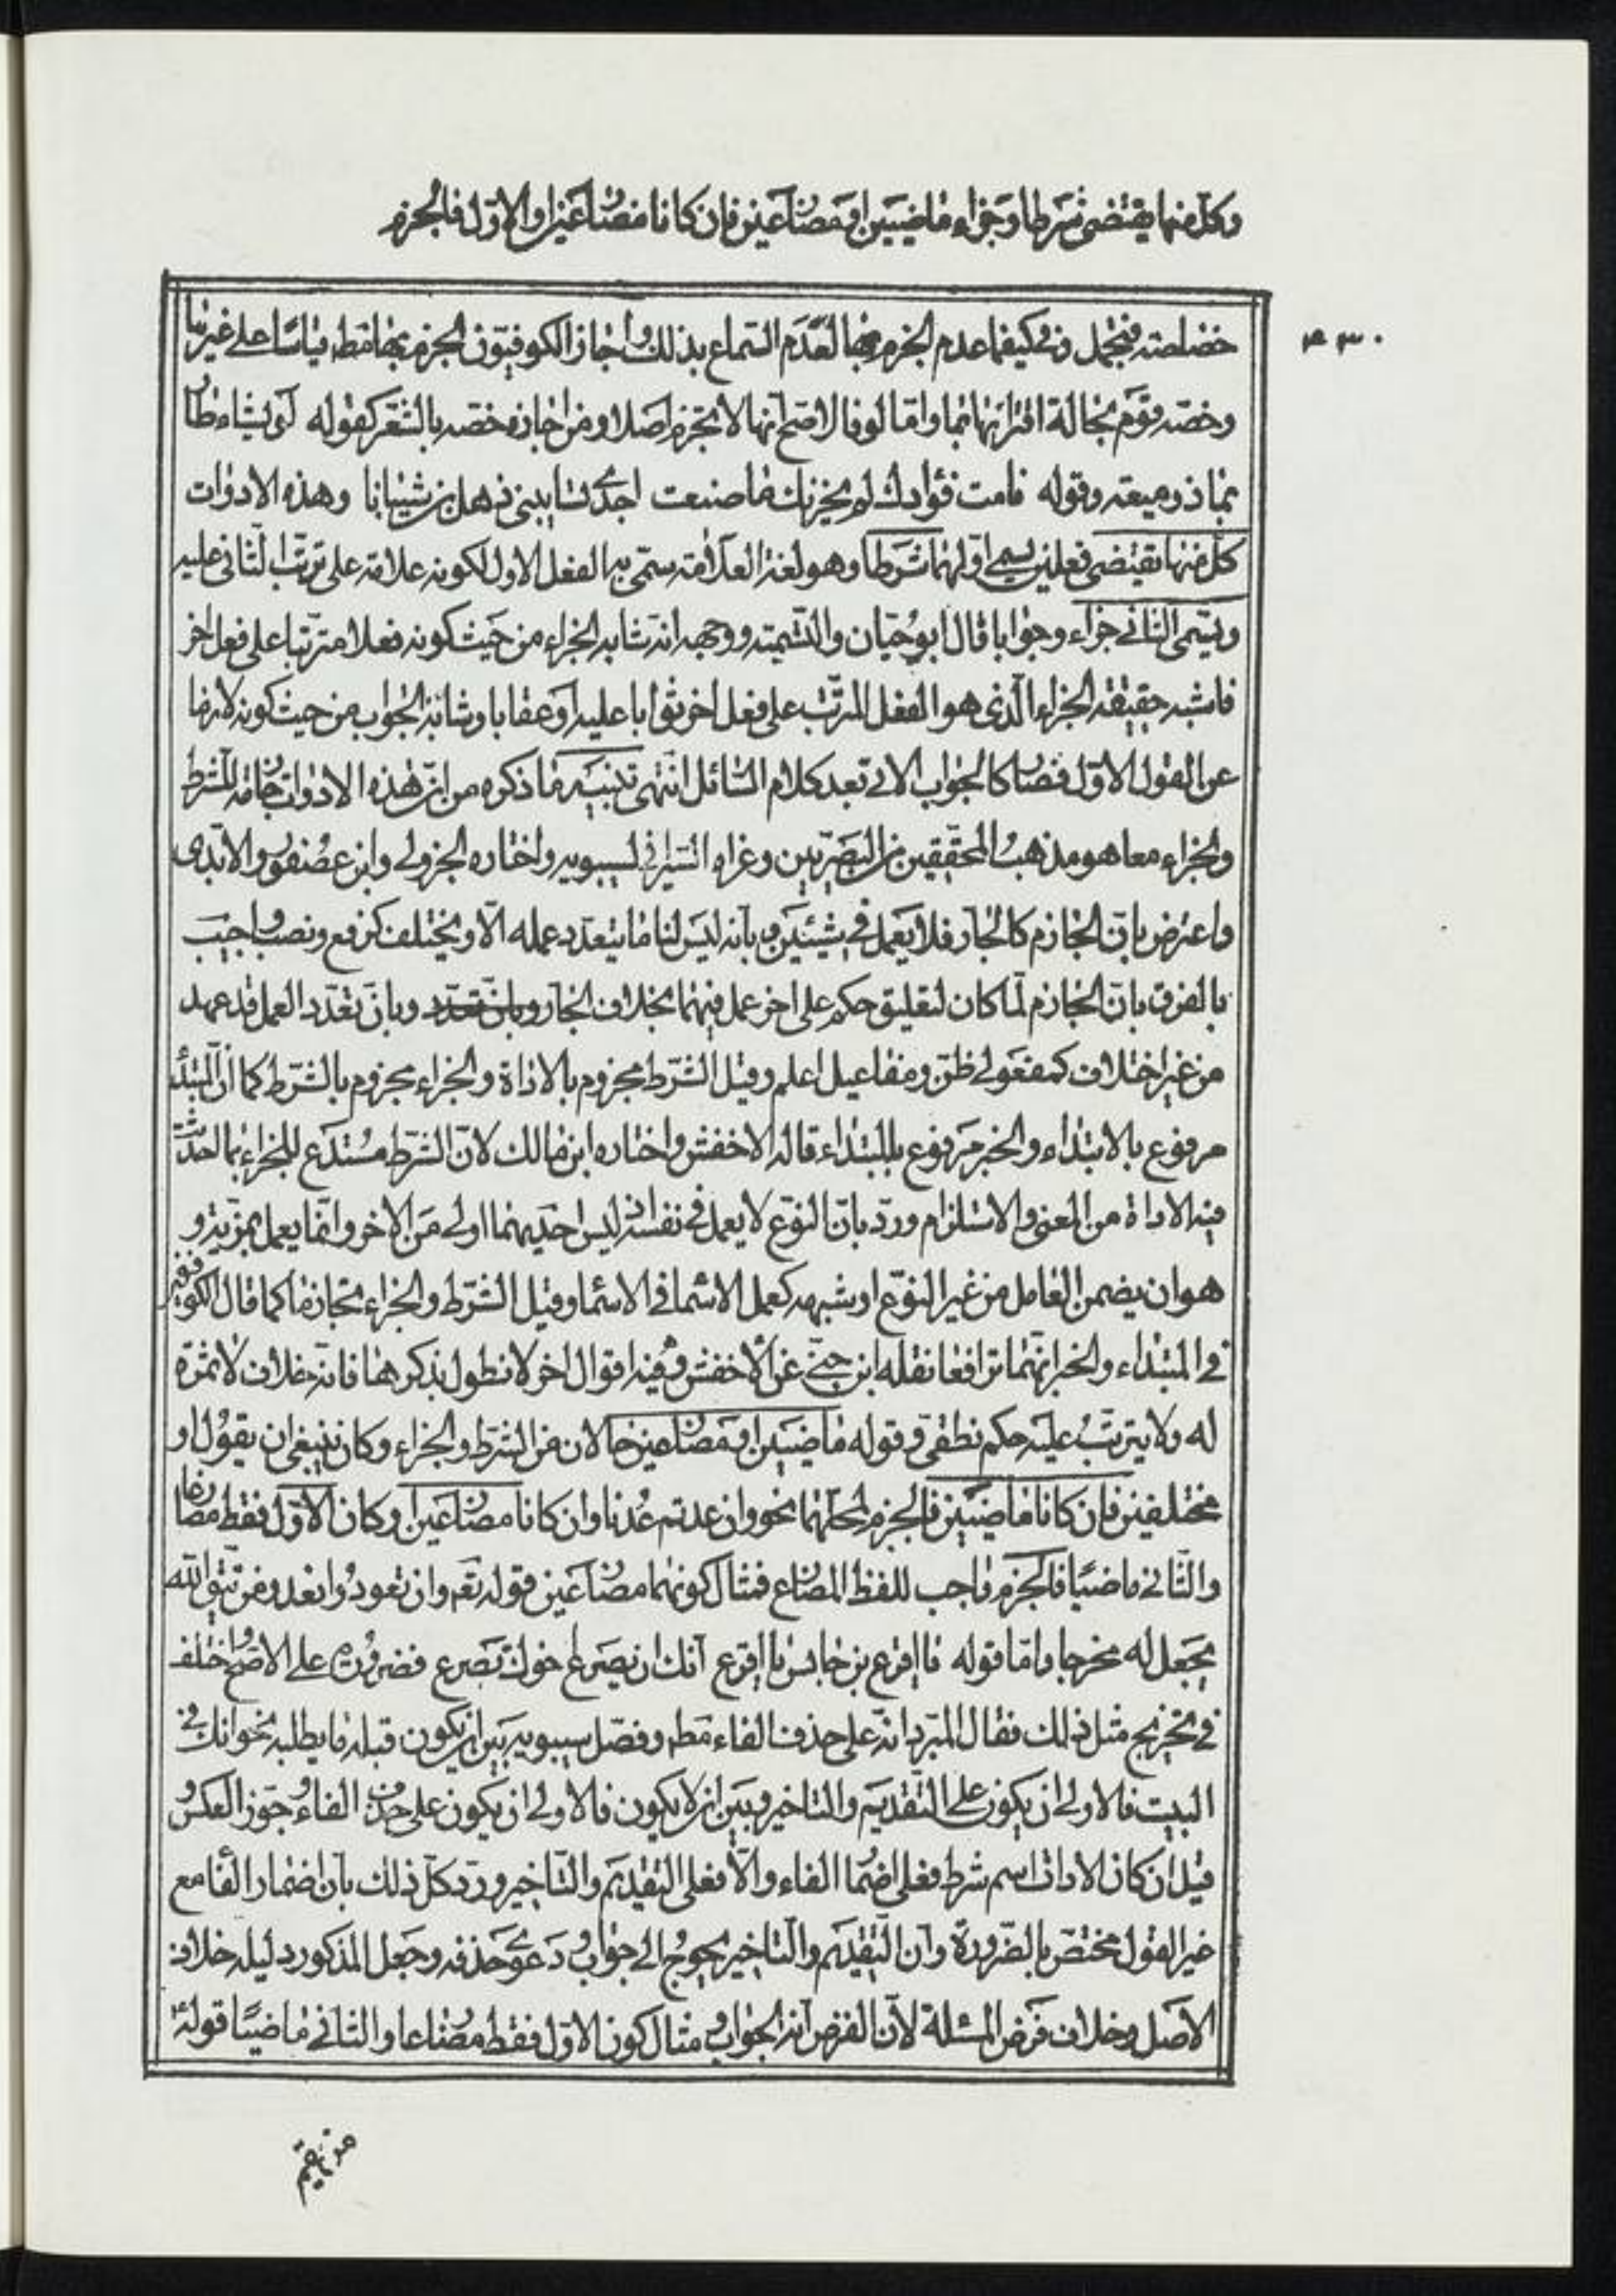 وكل منهما يقتضى شرطا وجزاء ماضيين او مضارعين فان كانا مضارعين او الاول فالجزم
٤٣٠
خصاصة فتجمل وفى كيفما عدم الجزم بها لعدم السماع بذلك واجاز الكوفيون الجزم بها فقط قياسا على غيرها
وخصه قوم بحالة اقترانها بما واما لو فالاصح انها لا تجزم اصلا ومن اجازه خصه بالشعر كقوله لو يشاء طار
بها ذو ميعة وقوله تامت فؤادك لو يحزنك ما صنعت احدى نساء بنى ذهل بن شيبانا وهذه الادوات
كل منها تقتضى فعلين يسمى اولهما شرطا وهو لغة العلامة سمى به الفعل الاول لكونه علامة على ترتب الثانى عليه
ويسمى الثانى جزاء وجوابا قال ابو حيان والتسمية ووجهه انه شابه الجزاء من حيث كونه فعلا مترتبا على فعل اخر
فاشبه حقيقة الجزاء الذى هو الفعل المرتب على فعل اخر ثوابا عليه او عقابا وشابه الجواب من حيث كونه لازما
عن القول الاول فصار كالجواب الاتى بعد كلام السائل انتهى تنبيه ما ذكره من ان هذه الادوات جازمة للشرط
والجزاء معا هو مذهب المحققين من البصريين وعزاه السيرافى لسيبويه واختاره الجزولى وابن عصفور والابدى
واعترض بان الجازم كالجار فلا يعمل فى شيئين وبانه ليس لنا ما يتعدد عمله الا ويختلف كرفع ونصب واجيب
بالفرق بان الجازم لما كان لتعليق حكم على اخر عمل فيهما بخلاف الجار وبان تعدد وبان تعدد العمل قد عهد
من غير اختلاف كمفعولى ظن ومفاعيل اعلم وقيل الشرط مجزوم بالاداة والجزاء مجزوم بالشرط كما ان المبتدأ
مرفوع بالابتداء والخبر مرفوع بالمبتداء قاله الاخفش واختاره ابن مالك لان الشرط مستدع للجزاء بما احدثت
فيه الاداة من المعنى والاستلزام ورد بان النوع لا يعمل فى نفسه اذ ليس احديهما اولى من الاخر وانما يعمل بمزية و
هو ان يضمن العامل من غير النوع او شبهه كعمل الاسما فى الاسما وقيل الشرط والجزاء تجازما كما قال الكوفيون
فى المبتداء والخبر انهما ترافعا نقله ابن جنى عن الاخفش وفيه اقوال اخر لا نطول بذكرها فانه خلاف لا ثمرة
له ولا يترتب عليه حكم نطقى وقوله ماضيين او مضارعين حالان من الشرط والجزاء وكان ينبغى ان يقول او
مختلفين فان كانا ماضيين فالجزم لمحلهما نحو وان عدتم عدنا وان كانا مضارعين او كان الاول فقط مضارعا
والثانى ماضيا فالجزم واجب للفظ المضارع فمثال كونهما مضارعين قوله تع وان تعودوا نعد ومن يتق الله
يجعل له مخرجا واما قوله يا اقرع بن حابس يا اقرع انك ان يصرع اخوك تصرع فضرورة على الاصح واختلف
فى تخريج مثل ذلك فقال المبرد انه على حذف الفاء مطه وفصل سيبويه بين ان يكون قبله ما يطلبه نحو انك فى
البيت فالاولى ان يكون على التقديم والتاخير وبين ان لا يكون فالاولى ان يكون على حذف الفاء وجوز العكس و
قيل ان كان الادات اسم شرط فعلى اضما الفاء والا فعلى التقديم والتاخير ورد كل ذلك بان اضمار الفا مع
غير القول مختص بالضرورة وان التقديم والتاخير يحوج الى جواب ودعوى حذفه وجعل المذكور دليله خلاف
الاصل وخلاف فرض المسئلة لان الفرض انه الجواب ومثال كون الاول فقط مضارعا والثانى ماضيا قوله ع
من يقم